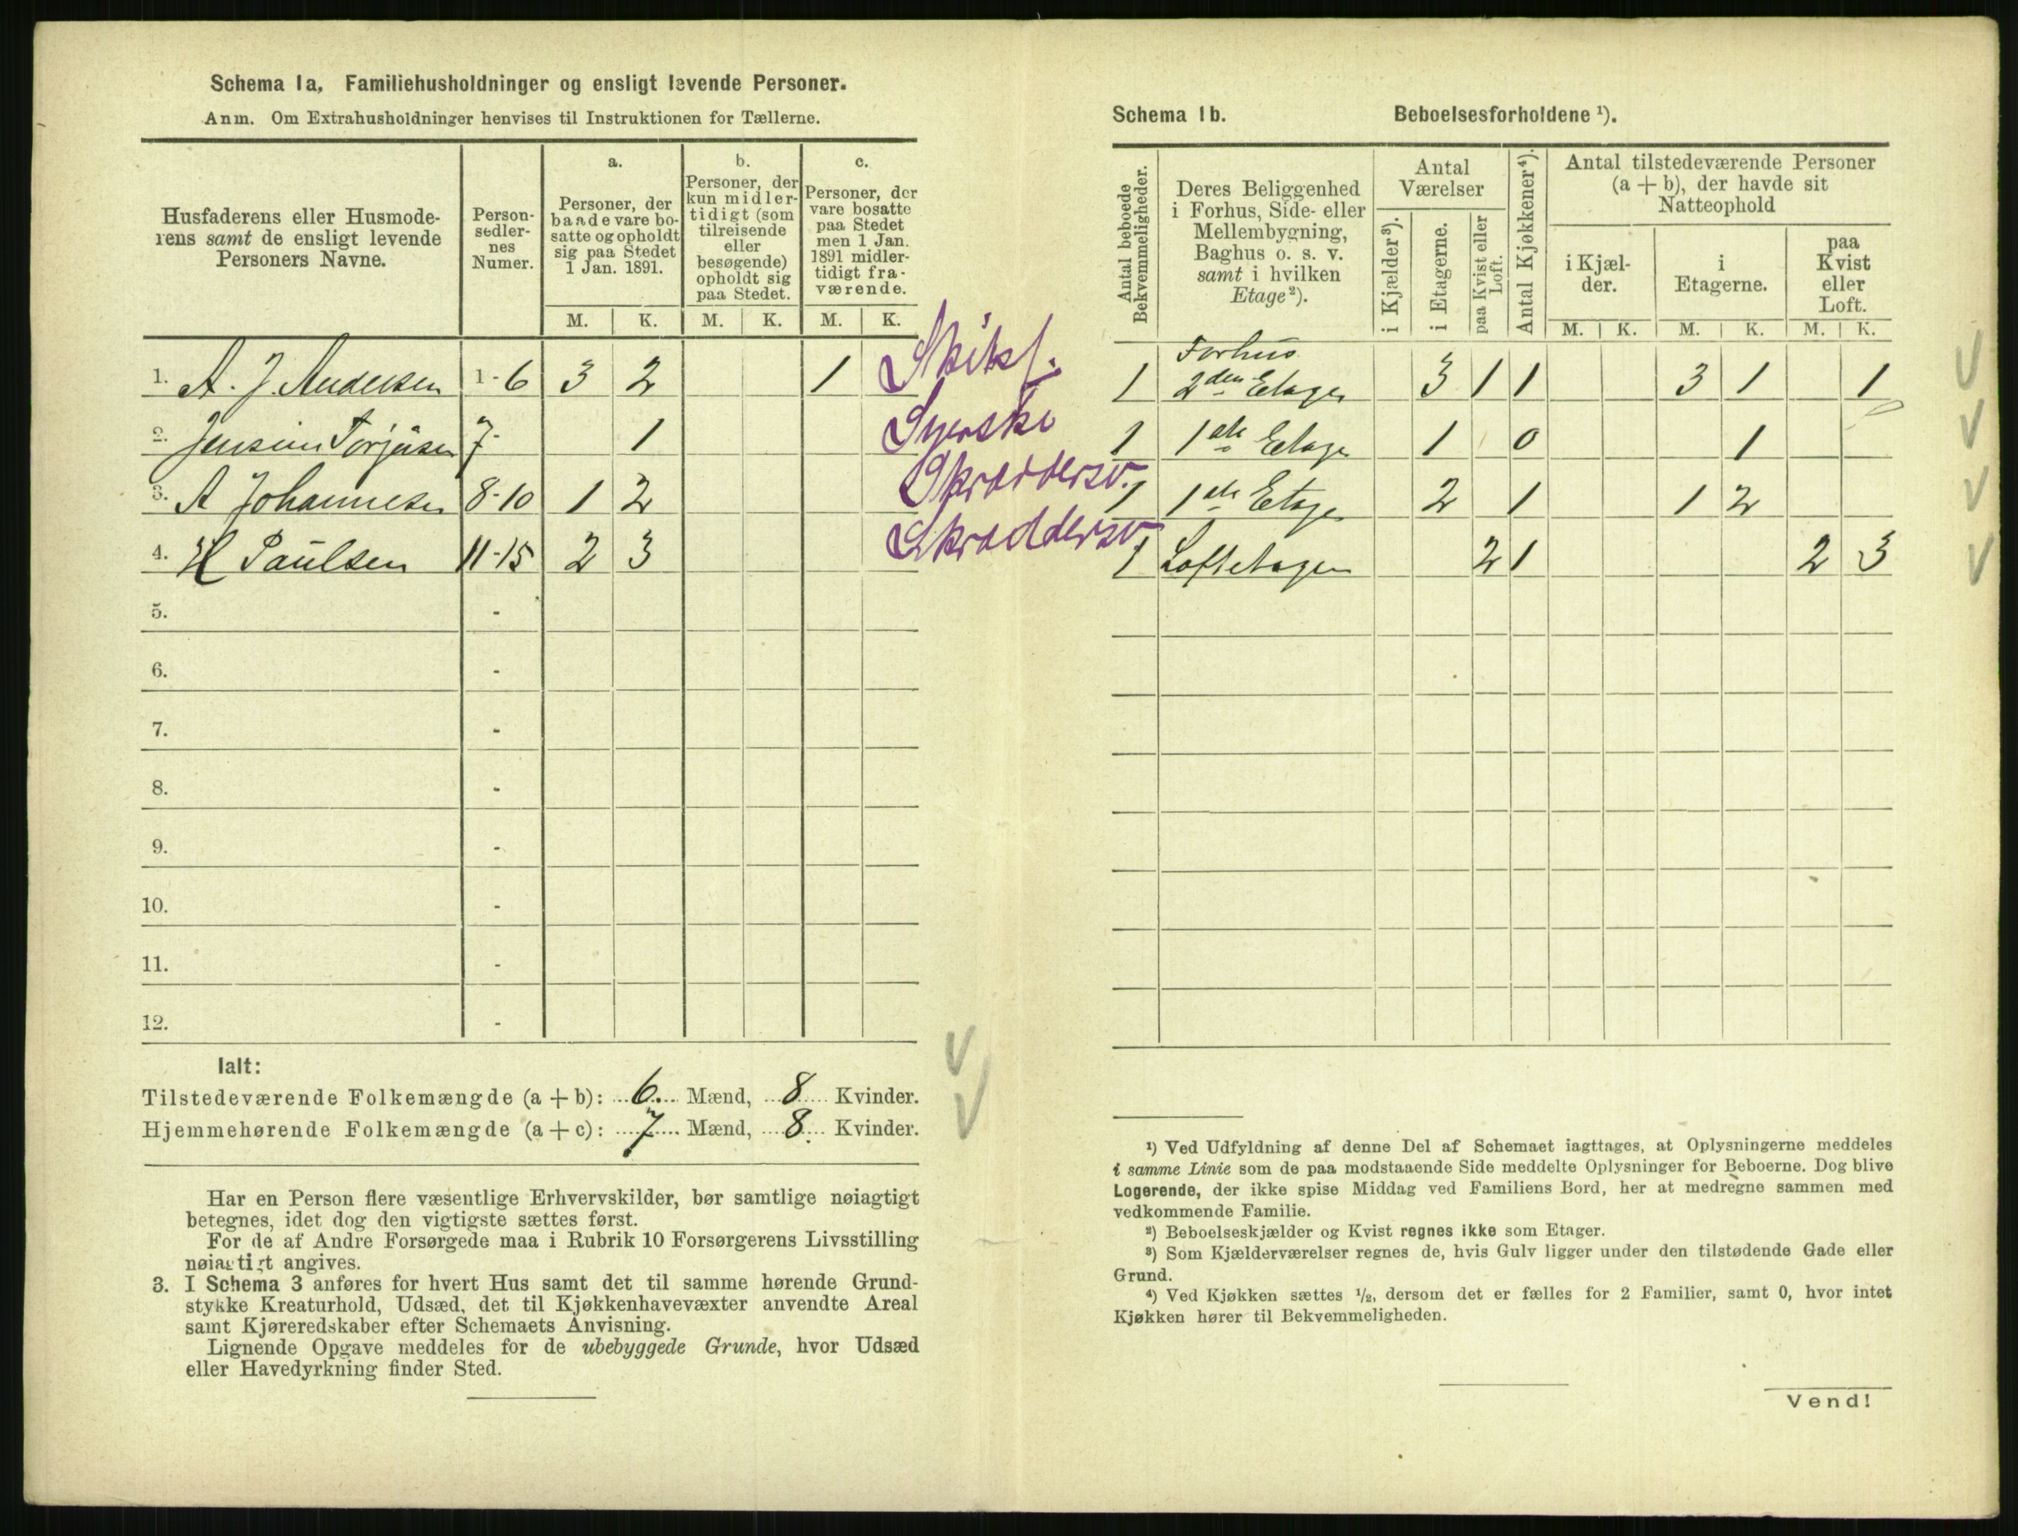 Schema 1a, Familiehusholdninger og ensligt levende Personer.
Anm. Om Extrahusholdninger henvises til Instruktionen for Tællerne.
Husfaderens eller Husmoderens samt de ensligt levende Personers Navne.
Personsedlernes Numer.
a.
Personer, der baade vare bosatte og opholdt sig paa Stedet 1 Jan. 1891.
b.
Personer, der kun midlertidigt (som tilreisende eller besøgende) opholdt sig paa Stedet.
c.
Personer, der vare bosatte paa Stedet men 1 Jan. 1891 midlertidigt fraværende.
M. K. M. K. M. K.
1. A. J. Andersen 1-6 3 2 1
2. Jensine Torjusen 7- 1 Syerske
3. A Johannesen 8-10 1 2 Skræddersv.
4. H Paulsen 11-15 2 3 Skræddersv
5. -
6. -
7. -
8. -
9. -
10. -
11. -
12. -
Ialt:
Tilstedeværende Folkemængde (a + b): 6 Mænd, 8 Kvinder.
Hjemmehørende Folkemængde (a + c): 7 Mænd, 8 Kvinder.
Har en Person flere væsentlige Erhvervskilder, bør samtlige nøiagtigt
betegnes, idet dog den vigtigste sættes først.
For de af Andre Forsørgede maa i Rubrik 10 Forsørgerens Livsstilling
nøiagtigt angives.
3. I Schema 3 anføres for hvert Hus samt det til samme hørende Grund-
stykke Kreaturhold, Udsæd, det til Kjøkkenhavevæxter anvendte Areal
samt Kjøreredskaber efter Schemaets Anvisning.
Lignende Opgave meddeles for de ubebyggede Grunde, hvor Udsæd
eller Havedyrkning finder Sted.
Schema 1b. Beboelsesforholdene ¹).
Antal beboede Bekvemmeligheder.
Deres Beliggenhed i Forhus, Side- eller Mellembygning, Baghus o. s. v. samt i hvilken Etage²).
Antal Værelser
i Kjælder³).
i Etagerne.
paa Kvist eller Loft.
Antal Kjøkkener⁴).
Antal tilstedeværende Personer (a + b), der havde sit Natteophold
i Kjælder.
i Etagerne.
paa Kvist eller Loft.
M. K. M. K. M. K.
1 Forhus 2den Etage 3 1 1 3 1 1
1 1ste Etage 1 0 1
1 1ste Etage 2 1 1 2
1 Loftetagen 2 1 2 3
¹) Ved Udfyldning af denne Del af Schemaet iagttages, at Oplysningerne meddeles
i samme Linie som de paa modstaaende Side meddelte Oplysninger for Beboerne. Dog blive
Logerende, der ikke spise Middag ved Familiens Bord, her at medregne sammen med
vedkommende Familie.
²) Beboelseskjælder og Kvist regnes ikke som Etager.
³) Som Kjælderværelser regnes de, hvis Gulv ligger under den tilstødende Gade eller
Grund.
⁴) Ved Kjøkken sættes ½, dersom det er fælles for 2 Familier, samt 0, hvor intet
Kjøkken hører til Bekvemmeligheden.
Vend!